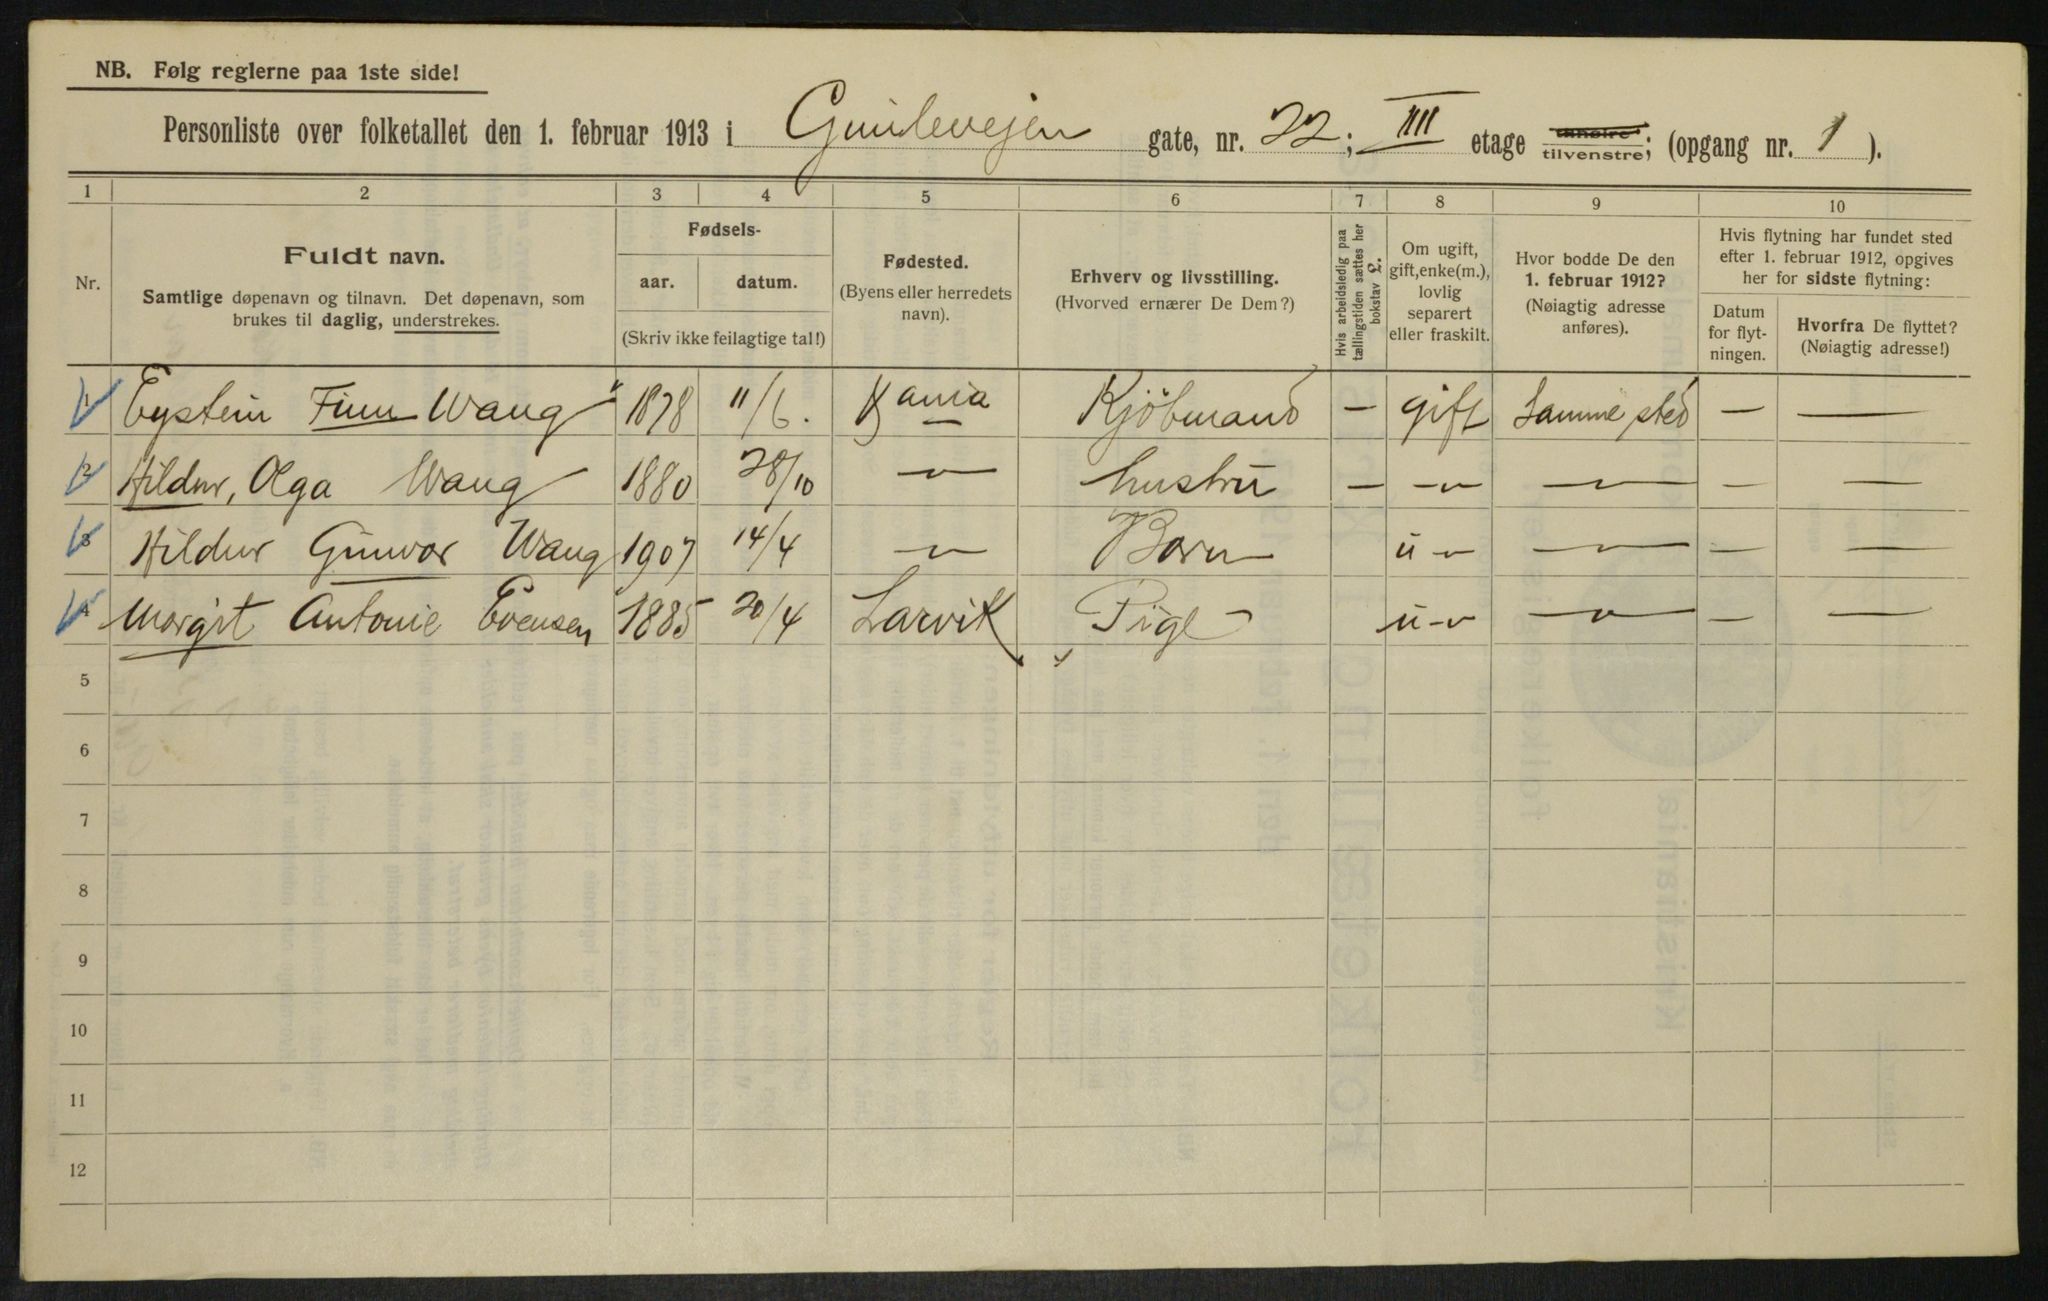 NB. Følg reglerne paa 1ste side!
Personliste over folketallet den 1. februar 1913 i Gimlevejen gate, nr. 22; IIII etage tilhøire tilvenstre; (opgang nr. 1).
1 2 3 4 5 6 7 8 9 10
Nr.
Fuldt navn.
Samtlige døpenavn og tilnavn. Det døpenavn, som
brukes til daglig, understrekes.
Fødsels-
aar. datum.
(Skriv ikke feilagtige tal!)
Fødested.
(Byens eller herredets
navn).
Erhverv og livsstilling.
(Hvorved ernærer De Dem?)
Hvis arbeidsledig paa
tællingstiden sættes her
bokstav L.
Om ugift,
gift, enke(m.),
lovlig
separert
eller fraskilt.
Hvor bodde De den
1. februar 1912?
(Nøiagtig adresse
anføres).
Hvis flytning har fundet sted
efter 1. februar 1912, opgives
her for sidste flytning:
Datum
for flyt-
ningen.
Hvorfra De flyttet?
(Nøiagtig adresse!)
1 Eystein Finn Wang 1878 11/6. Kania Kjöbmand — gift Samme sted — —
2 Hildur, Olga Wang 1880 28/10 —"— hustru — —"— —"— — —
3 Hildur Gunvor Wang 1907 14/4 —"— Barn u —"— — —
4 Margit Antonie Evensen 1885 20/4 Larvik Pige u —"— — —
5
6
7
8
9
10
11
12